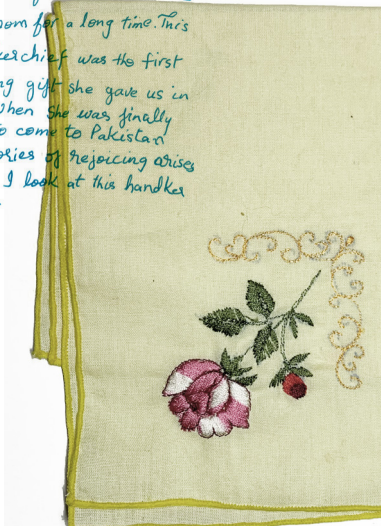 oom for a long time. This
erchief was the first
ng gift she gave us in
when she was finally
o come to Pakistan
ories of rejoicing arises
I look at this handker